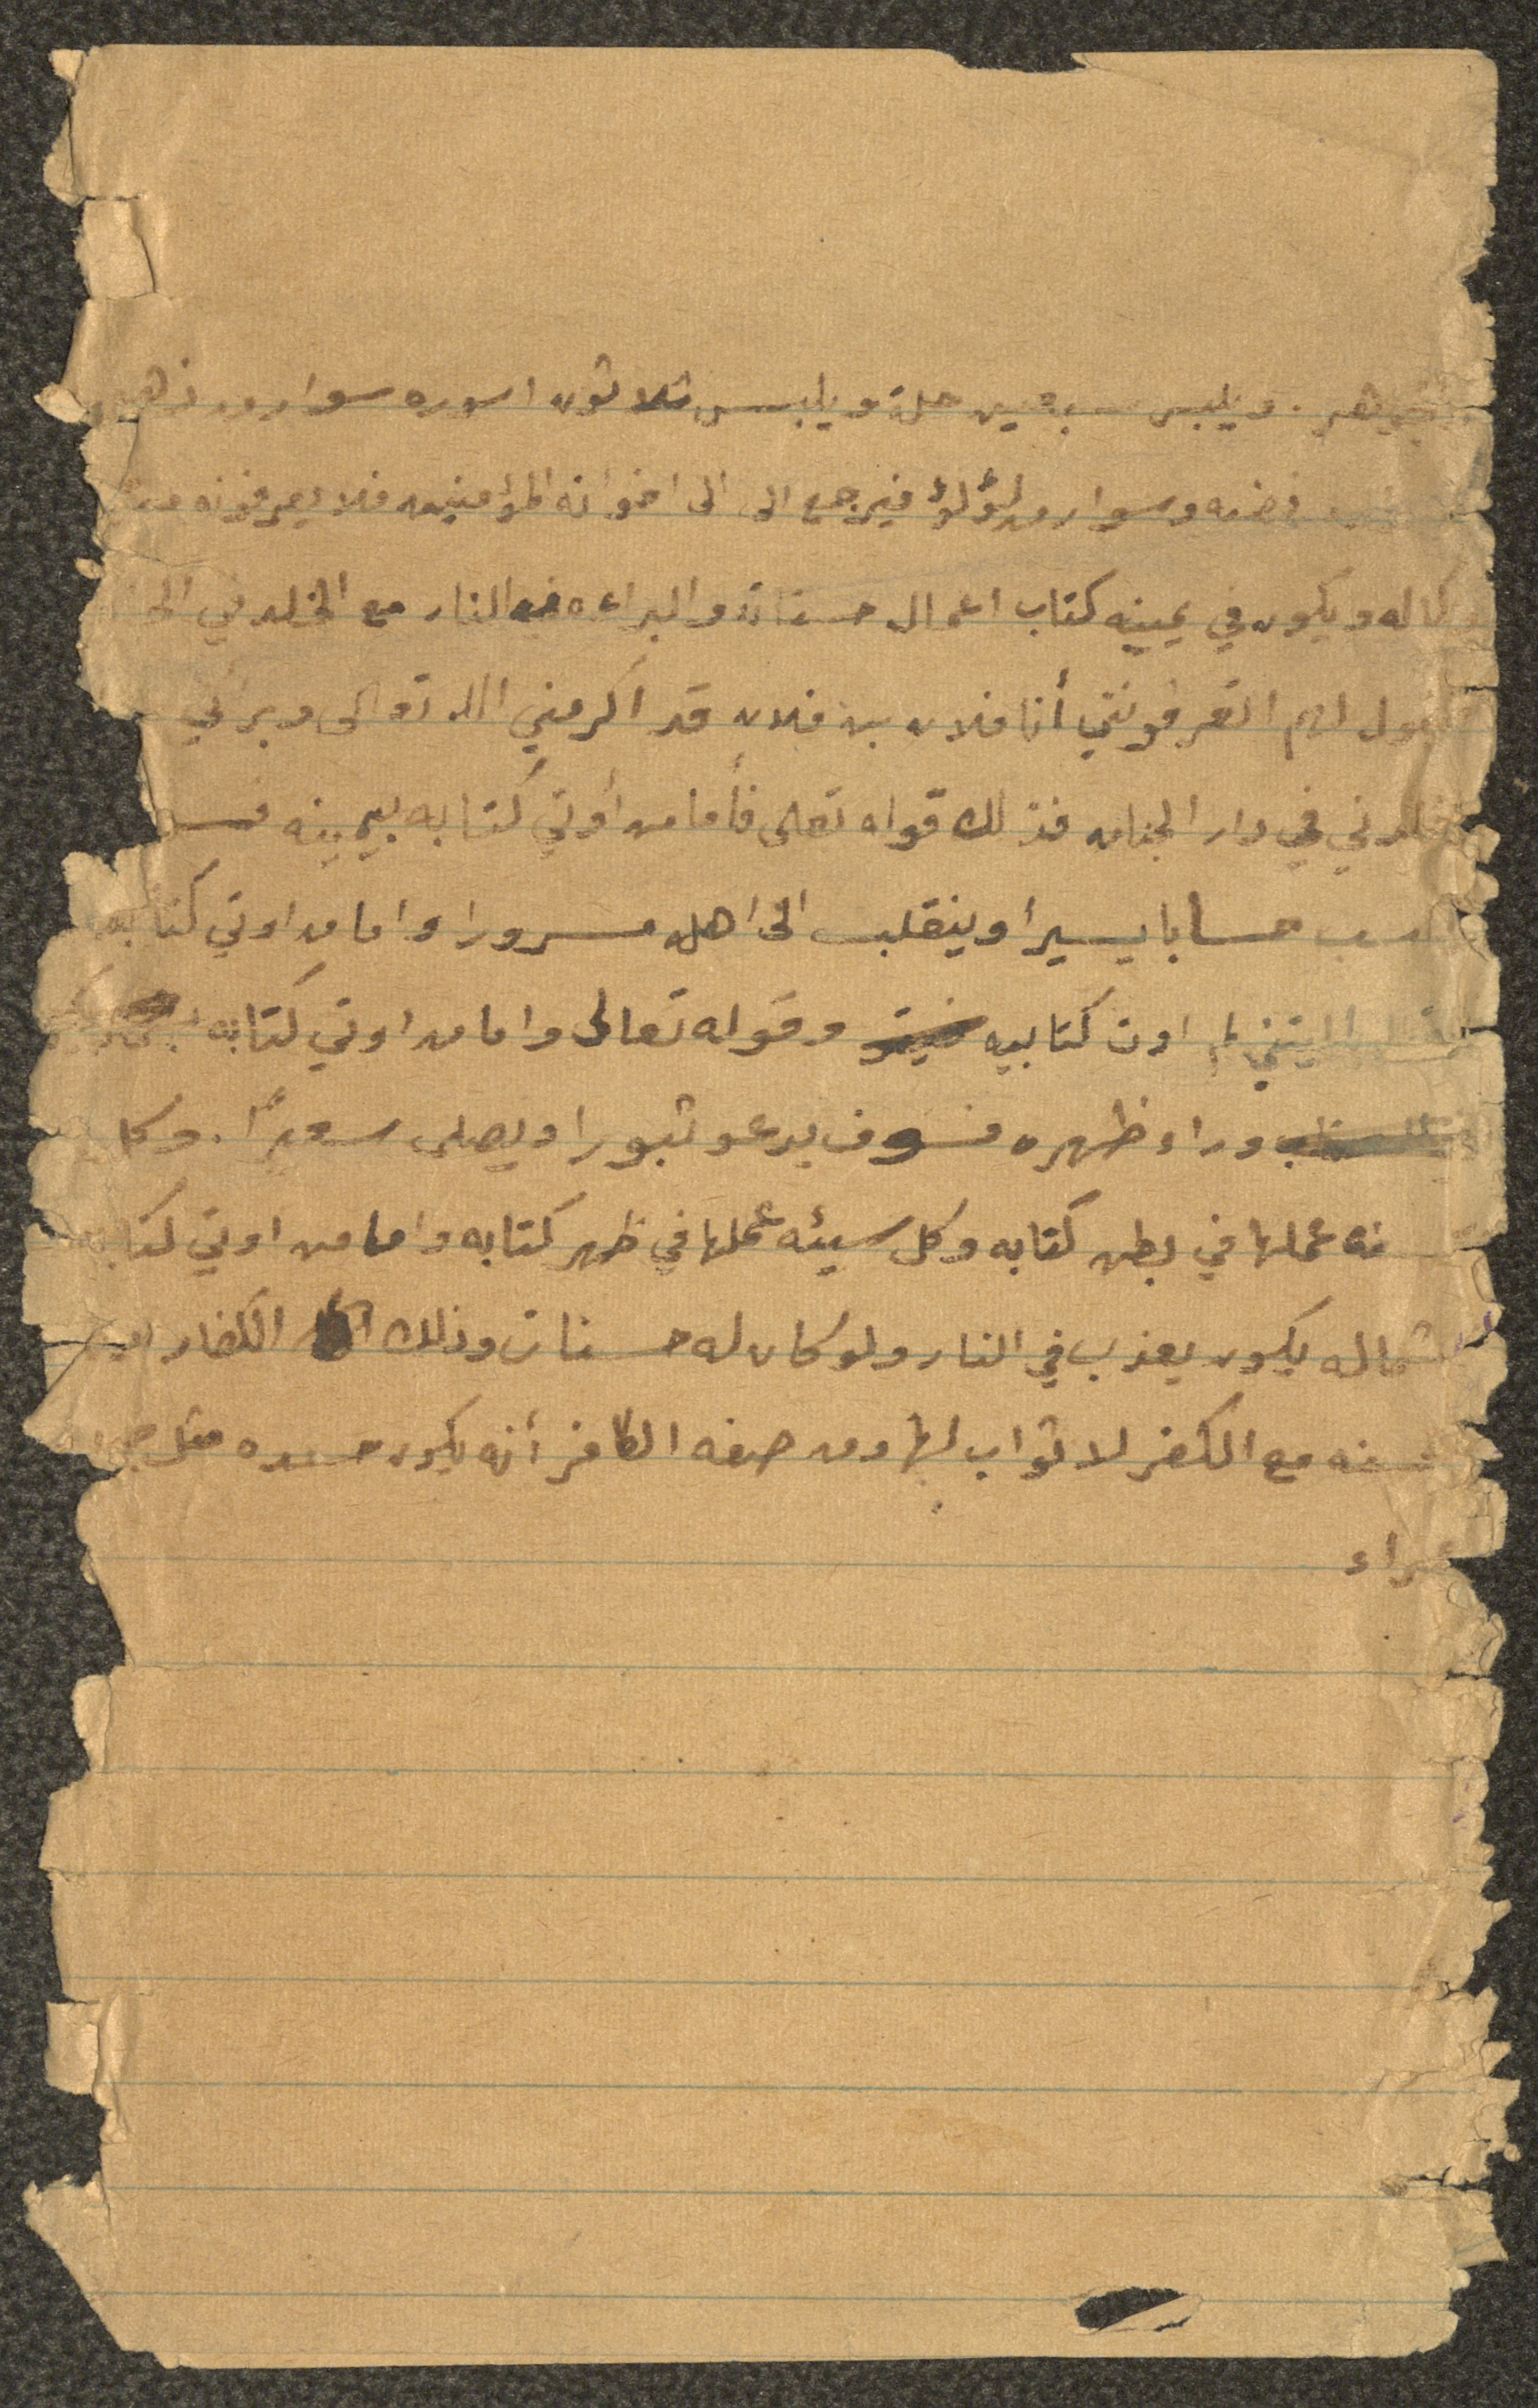 ويلبس سبعين حلة ويلبس ثلاثون اسوره سوار من ذهب
فضه وسوار من لؤلؤ فيرجع الى الى اخوانه المؤمنين فلا يعرفونه من
كماله ويكون في يمينه كتاب اعمال حسناته والبراءه من النار مع الخلد في
لهم اتعرفونني أنا فلان بن فلان قد اكرمني الله تعالى وبرأني
في دار الجنان فذلك قوله تعالى فأما من أوتي كتابه بيمينه فسو
حسابا يسيرا وينقلب الى اهله مسرورا واما من اوتي كتابه
ياليتني لم اوت كتابيه وقوله تعالى واما من اوتي كتابه
وراء ظهره فسوف يدعو ثبورا ويصلى سعيرًا. وكل
عملها في بطن كتابه وكل سيئه عملها في ظهر كتابه واما من اوتي كتابه
شماله يكون يعذب في النار ولو كان له حسنات وذلك الكفار
مع الكفر لا ثواب لها ومن صفه الكافر أنه يكون جسده مثل